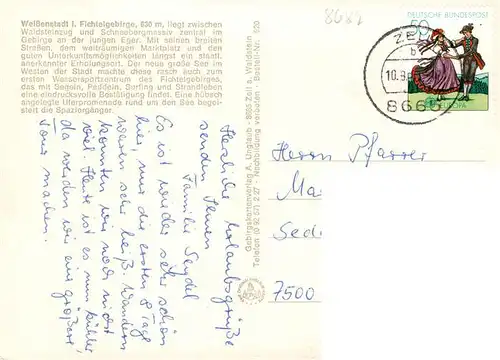 Weißenstadt i. Fichtelgebirge, 630 m, liegt zwischen
Waldsteinzug und Schneebergmassiv zentral im
Gebirge an der jungen Eger. Mit seinen breiten
Straßen, dem weiträumigen Marktplatz und den
guten Unterkunftsmöglichkeiten längst ein staatl.
anerkannter Erholungsort. Der neue große See im
Westen der Stadt machte diese rasch auch zum
ersten Wassersportzentrum des Fichtelgebirges,
das mit Segeln, Paddeln, Surfing und Strandleben
eine eindrucksvolle Bestätigung findet. Eine hübsch
angelegte Uferpromenade rund um den See begei-
stert die Spaziergänger.
Herzliche Urlaubsgrüße
senden Ihnen
Familie Seydel
Es ist wieder sehr schön
hier, nur die ersten 8 Tage
waren sehr heiß. Wandern
konnten wir noch nicht
viel. Heute ist es nun kühler
da werden wir eine größere
Tour machen.
Gebirgskartenverlag A. Unglaub · 8665 Zell a. Waldstein
Telefon (0 92 57) 2 27 · Nachbildung verboten · Bestell-Nr. 630
8687
DEUTSCHE BUNDESPOST
50
ZE
b
10.8.
8665
Herrn Pfarrer
Ma
Sed
7500